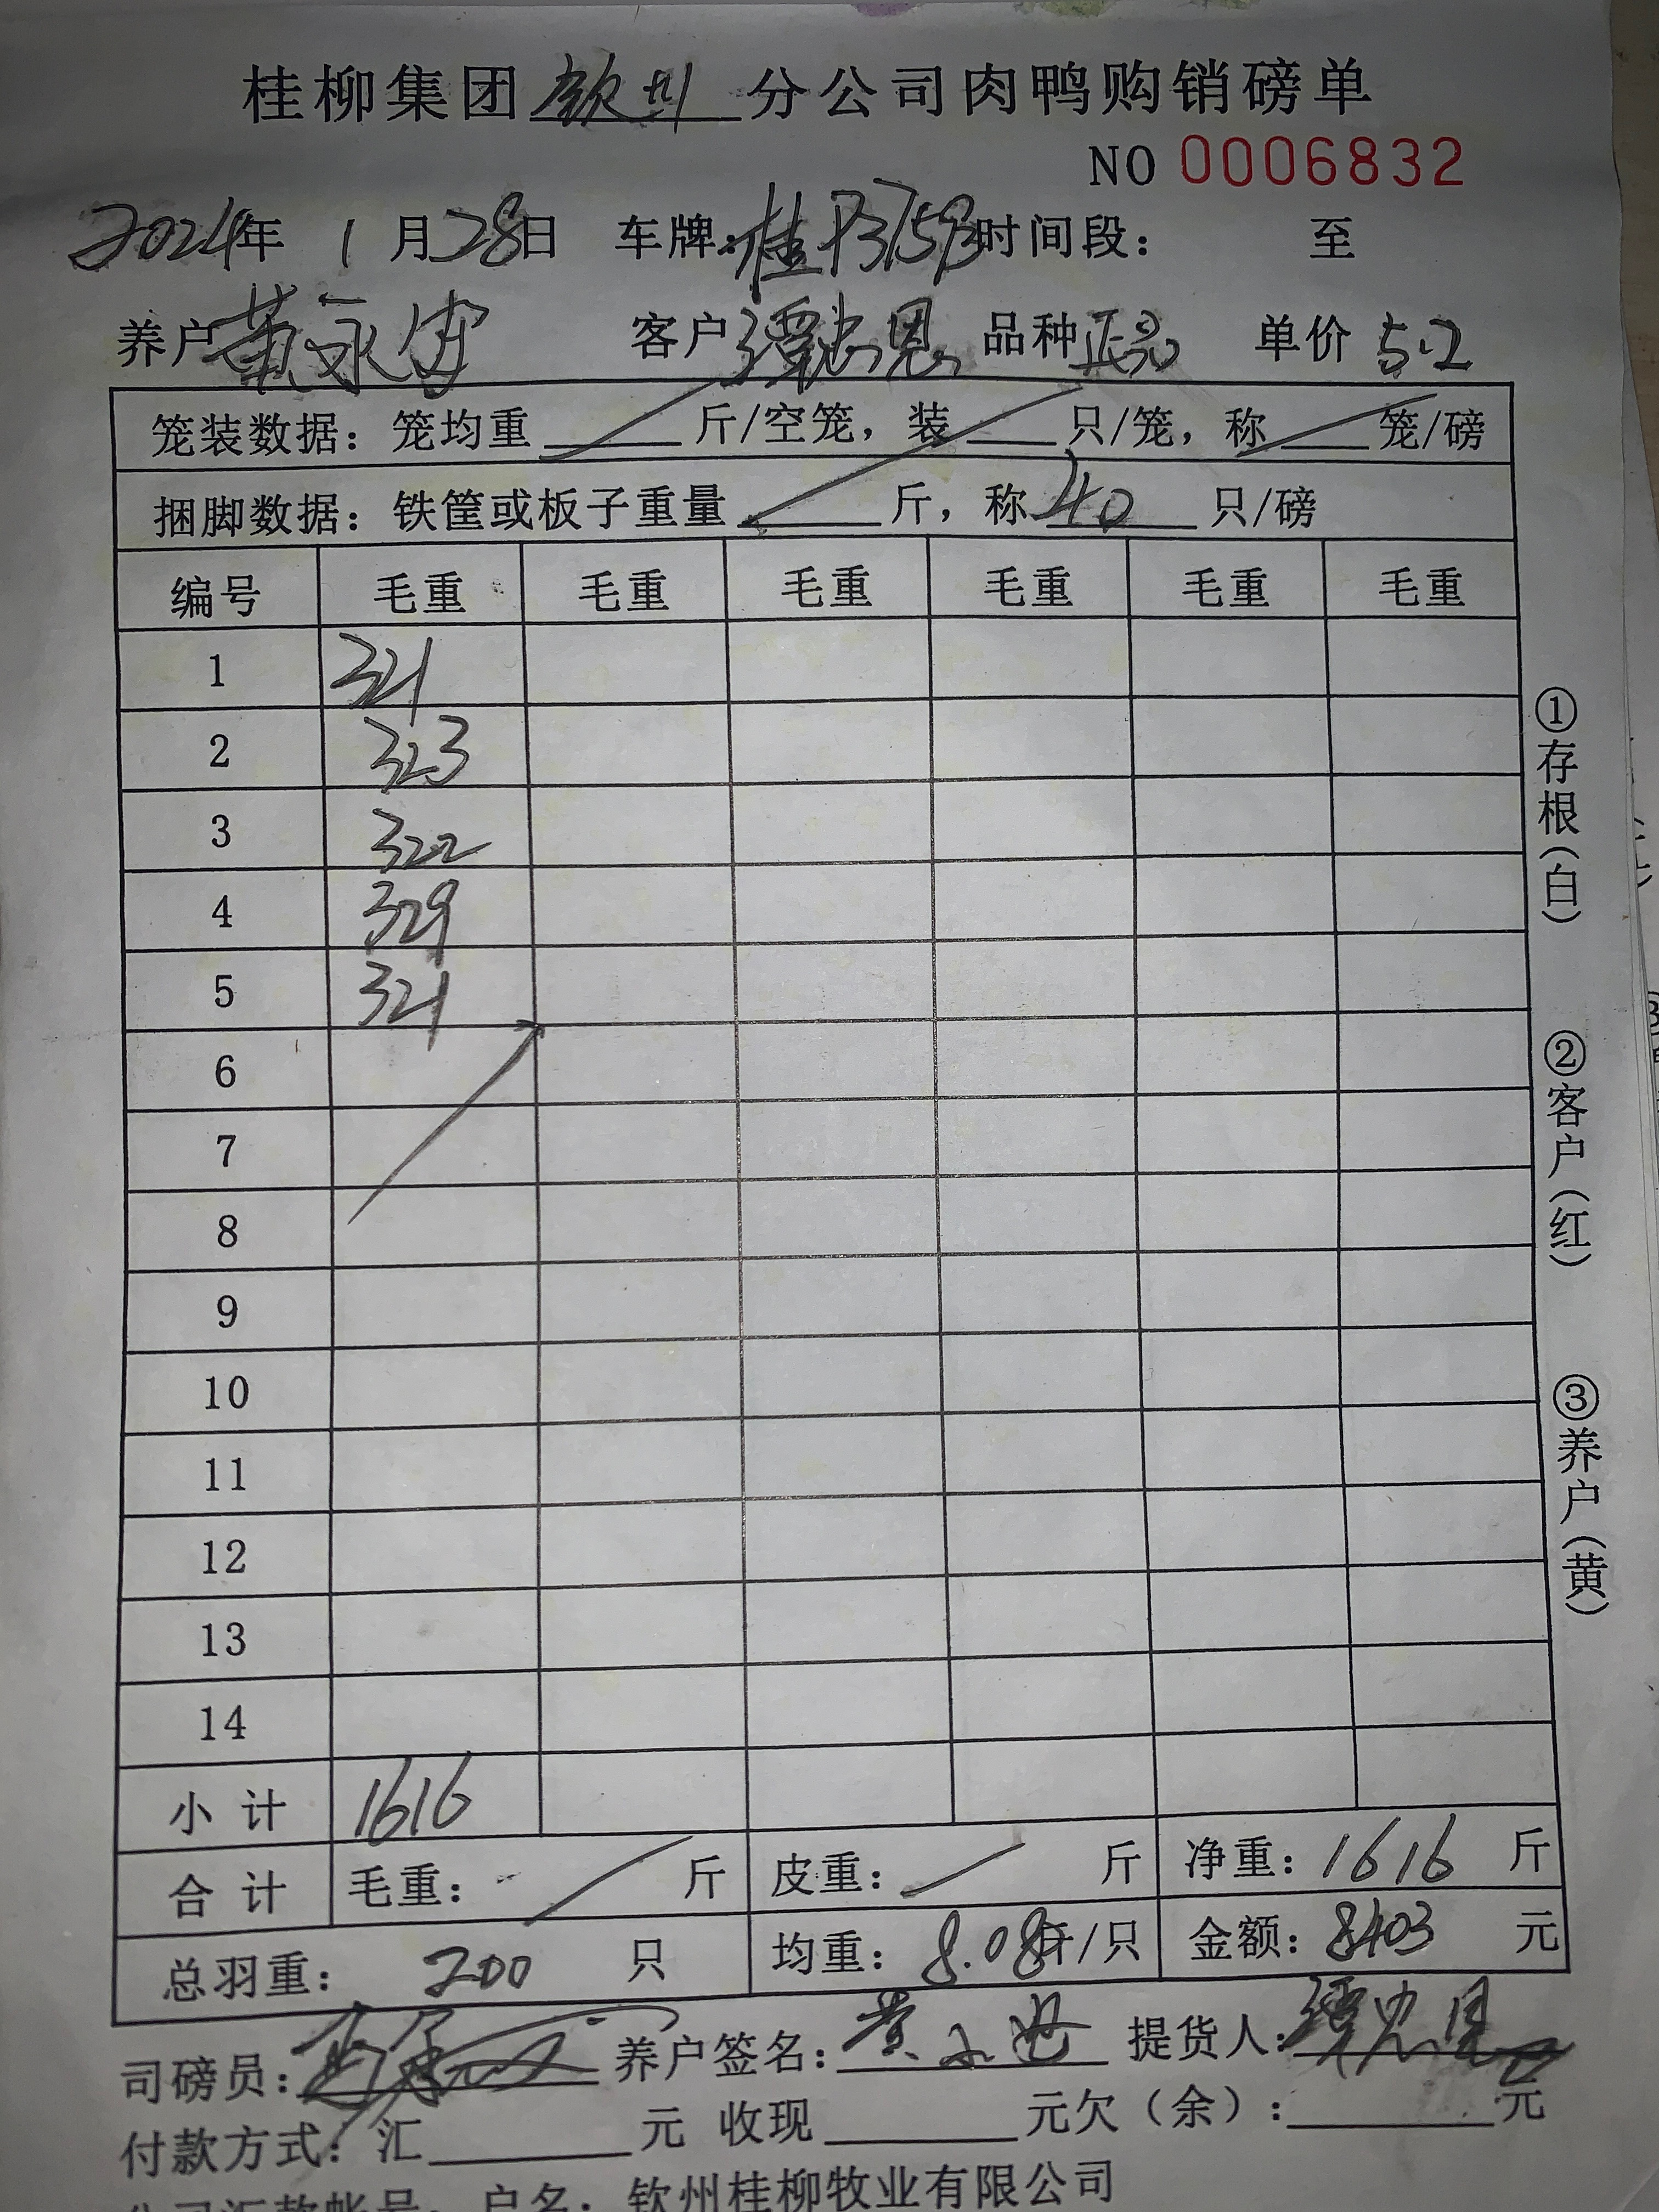 桂柳集团钦州分公司肉鸭购销磅单
NO 0006832
2024年 1月28日 车牌:桂P3759 时间段: 至
养户黄永 客户谭忠恩 品种正品 单价 5.2
笼装数据:笼均重 斤/空笼,装 只/笼,称 笼/磅
捆脚数据:铁筐或板子重量 斤,称 40 只/磅
编号 毛重 毛重 毛重 毛重 毛重 毛重
1 321
2 323
3 322
4 329
5 321
6
7
8
9
10
11
12
13
14
小计 1616
合计 毛重: 斤 皮重: 斤 净重:1616 斤
总羽重: 200 只 均重: 8.08斤/只 金额:8403 元
司磅员: 养户签名:黄 提货人:谭忠恩
付款方式:汇 元 收现 元欠(余): 元
公司汇款帐号:户名:钦州桂柳牧业有限公司
①存根(白)
②客户(红)
③养户(黄)